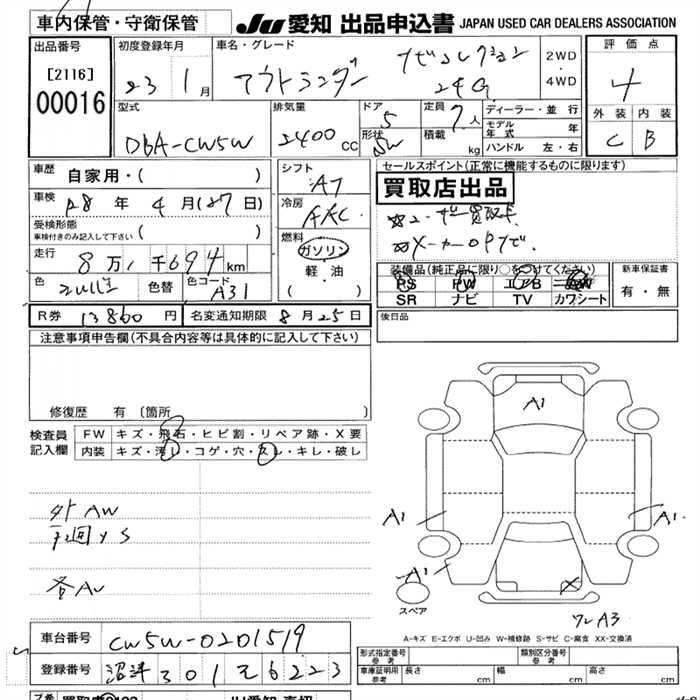 車内保管・守衛保管
JU 愛知 出品申込書 JAPAN USED CAR DEALERS ASSOCIATION
出品番号
[2116]
00016
初度登録年月
23 1月
車名・グレード
アウトランダー ナビコレクション
24G
2WD
4WD
評価点
4
外装 内装
C B
型式
DBA-CW5W
排気量
2400 cc
ドア
5
形状
SW
定員
7人
積載
kg
ディーラー・並行
モデル年式 年
ハンドル 左・右
車歴 自家用・( )
車検 28年 4月(27日)
受検形態
車検付きのみ記入して下さい ( )
走行 8万1千694km
色 色替 色コード
A31
シフト
AT
冷房
AAC
燃料
ガソリン
軽・油
( )
セールスポイント(正常に機能するものに限ります)
買取店出品
ユーザー買取車
メーカーOPナビ
装備品(純正品に限り○をつけてください)
PS PW エアB
SR ナビ TV カワシート
新車保証書
有・無
R券 13860円 名変通知期限 8月25日
後日品
注意事項申告欄(不具合内容等は具体的に記入して下さい)
修復歴 有 〔箇所 〕
検査員記入欄
FW キズ・飛石・ヒビ割・リペア跡・X要
内装 キズ・汚レ・コゲ・穴・スレ・キレ・破レ
外AW
下廻りS
A1
A1
A1
A1
スペア
ワレA3
A-キズ E-エクボ U-凹み W-補修跡 S-サビ C-腐食 XX-交換済
車台番号 CW5W-0201519
登録番号 沼津 301 そ 6223
形式指定番号 参考
類別区分番号 参考
車庫証明用 参考 長さ cm 幅 cm 高さ cm